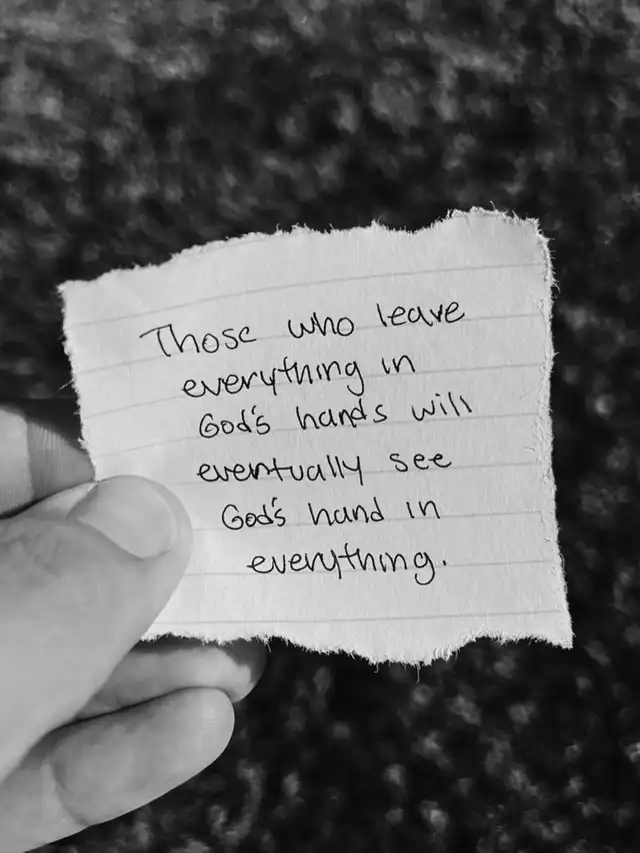 Those who leave
everything in
God's hands will
eventually see
God's hand in
everything.